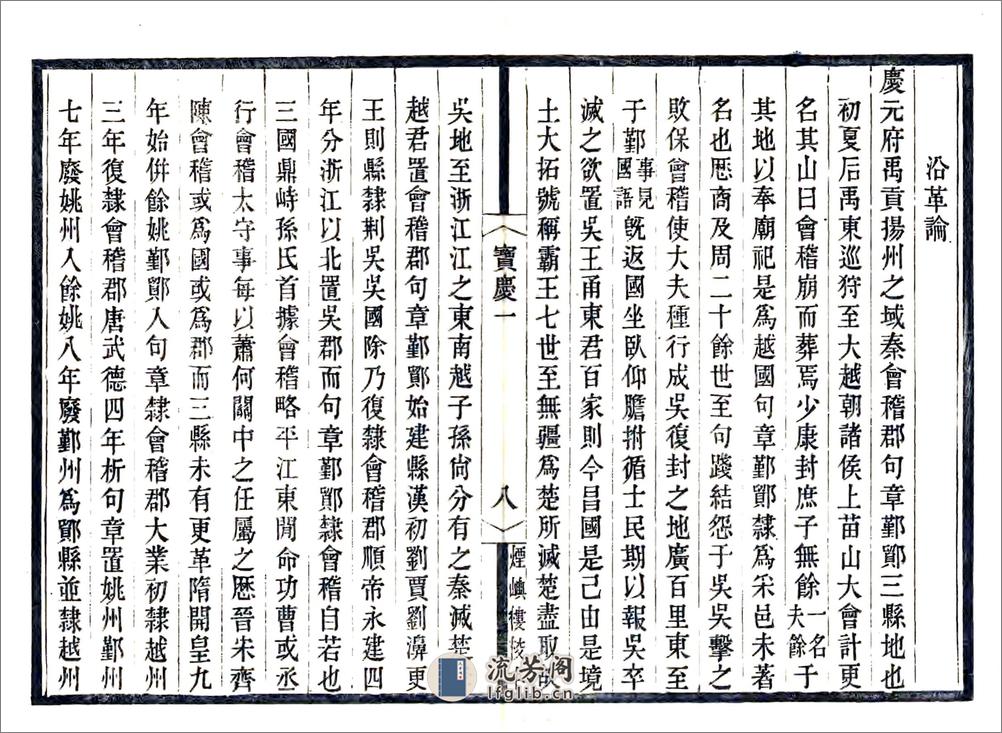 沿革論
慶元府禹貢揚州之域秦會稽郡句章鄞鄮三縣地也
初夏后禹東巡狩至大越朝諸侯上苗山大會計更
名其山曰會稽崩而葬焉少康封庶子無餘一名夫餘于
其地以奉廟祀是為越國句章鄞鄮隸為采邑未著
名也歷商及周二十餘世至句踐結怨于吳吳擊之
敗保會稽使大夫種行成吳復封之地廣百里東至
于鄞事見國語旣返國坐臥仰膽拊循士民期以報吳卒
滅之欲置吳王甬東君百家則今昌國是已由是境
土大拓號稱霸王七世至無疆為楚所滅楚盡取故
寶慶一
八
煙嶼樓校
吳地至浙江江之東南越子孫尙分有之秦滅楚
越君置會稽郡句章鄞鄮始建縣漢初劉賈劉濞更
王則縣隸荆吳吳國除乃復隸會稽郡順帝永建四
年分浙江以北置吳郡而句章鄞鄮隸會稽自若也
三國鼎峙孫氏首據會稽略平江東閒命功曹或丞
行會稽太守事每以蕭何關中之任屬之歷晉宋齊
陳會稽或爲國或爲郡而三縣未有更革隋開皇九
年始併餘姚鄞鄮入句章隸會稽郡大業初隸越州
三年復隸會稽郡唐武德四年析句章置姚州鄞州
七年廢姚州入餘姚八年廢鄞州爲鄮縣並隸越州
流芳阁
lfglib.cn